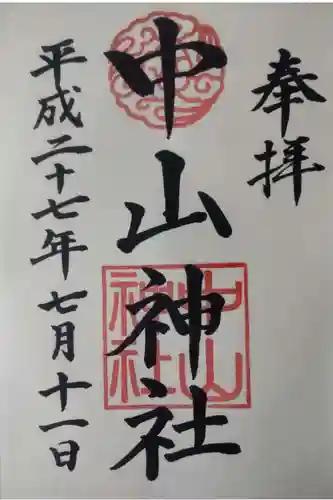 奉拝
中山神社
中山神社
平成二十七年七月十一日